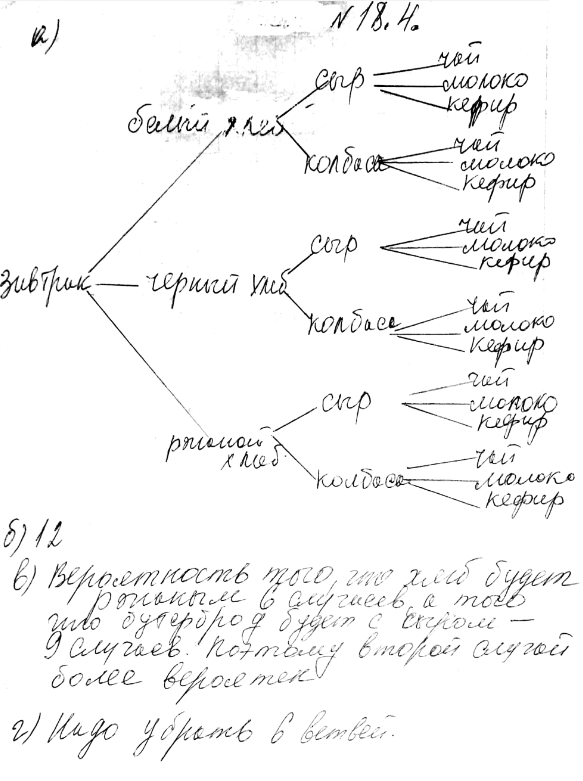 N 18.4.
а)
чай
сыр молоко
кефир
белый хлеб
чай
колбаса молоко
кефир
чай
сыр молоко
кефир
завтрак черный хлеб
чай
колбаса молоко
кефир
чай
сыр молоко
кефир
ржаной
хлеб
чай
колбаса молоко
кефир
б) 12
в) Вероятность того, что хлеб будет
ржаным 6 случаев, а того
что бутерброд будет с сыром –
9 случаев. Поэтому второй случай
более вероятен
г) Надо убрать 6 ветвей.